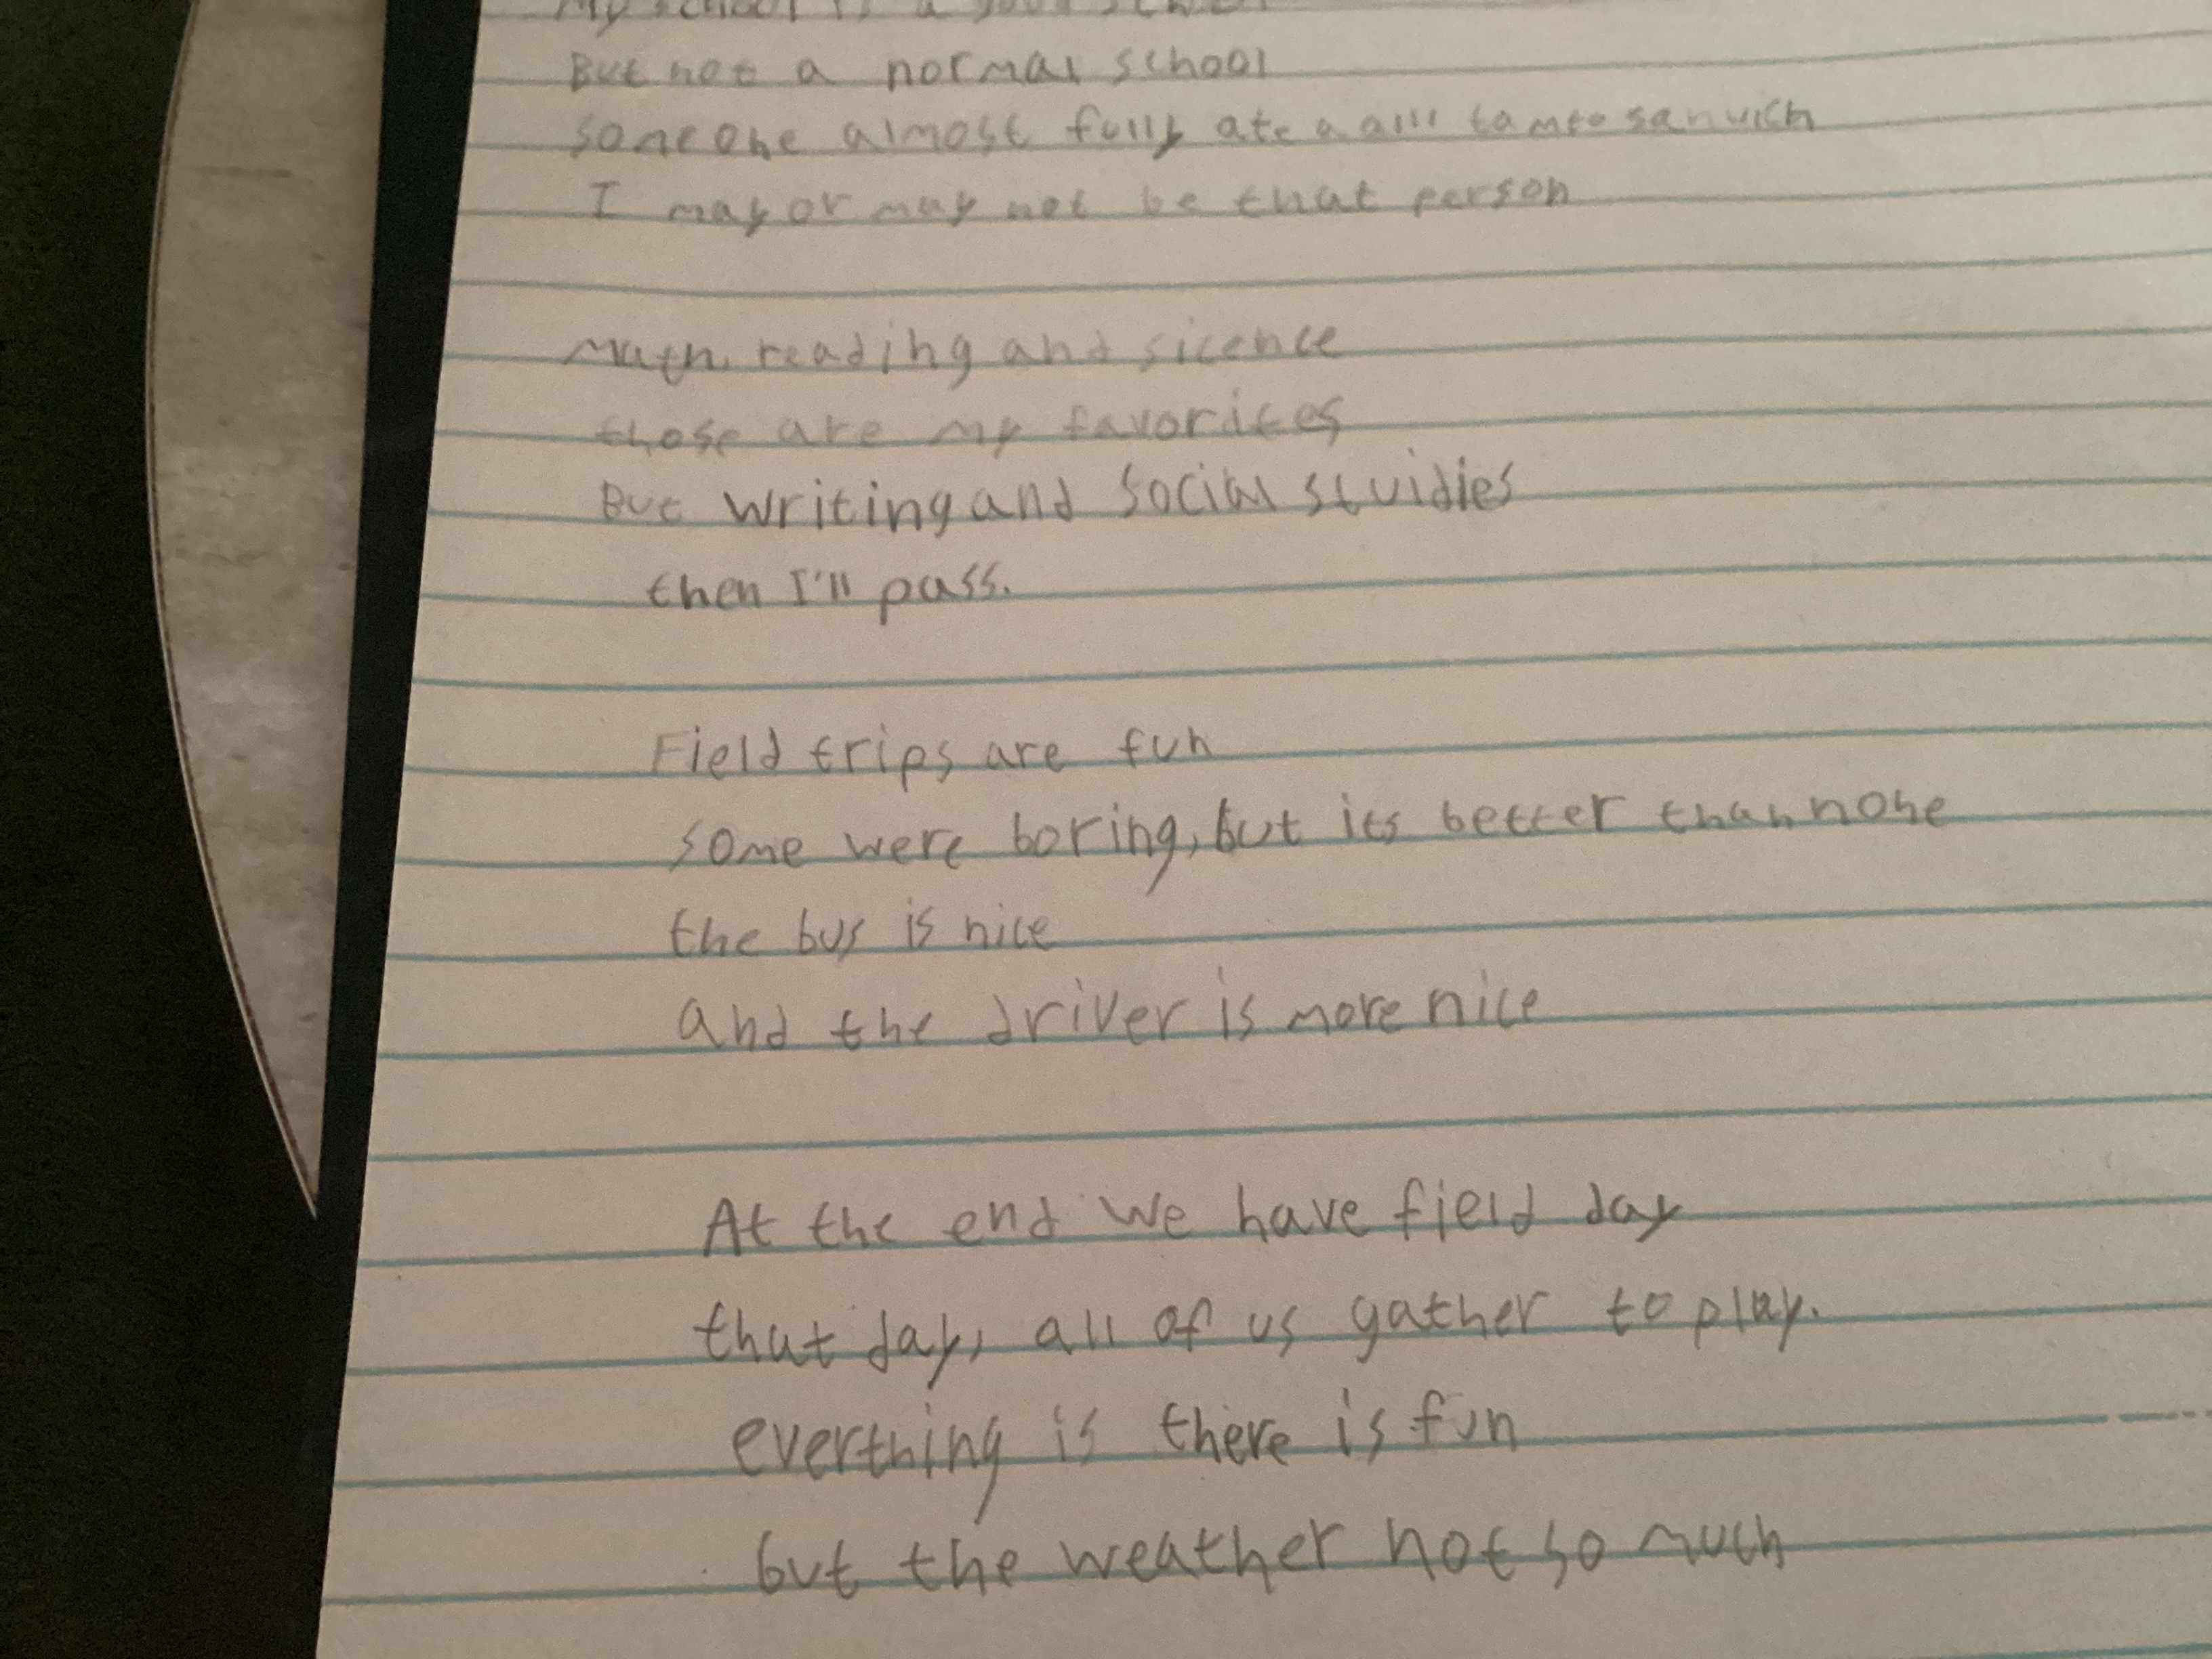 My school is a good school
But not a normal school
Someone almost fully ate a tamto sanwich
I may or may not be that person
Math, reading and sicence
those are my favorites
But writing and social stuidies
then I'll pass.
Field trips are fun
some were boring, but its better than none
the bus is nice
and the driver is more nice
At the end we have field day
that day, all of us gather to play.
everthing is there is fun
but the weather not so much